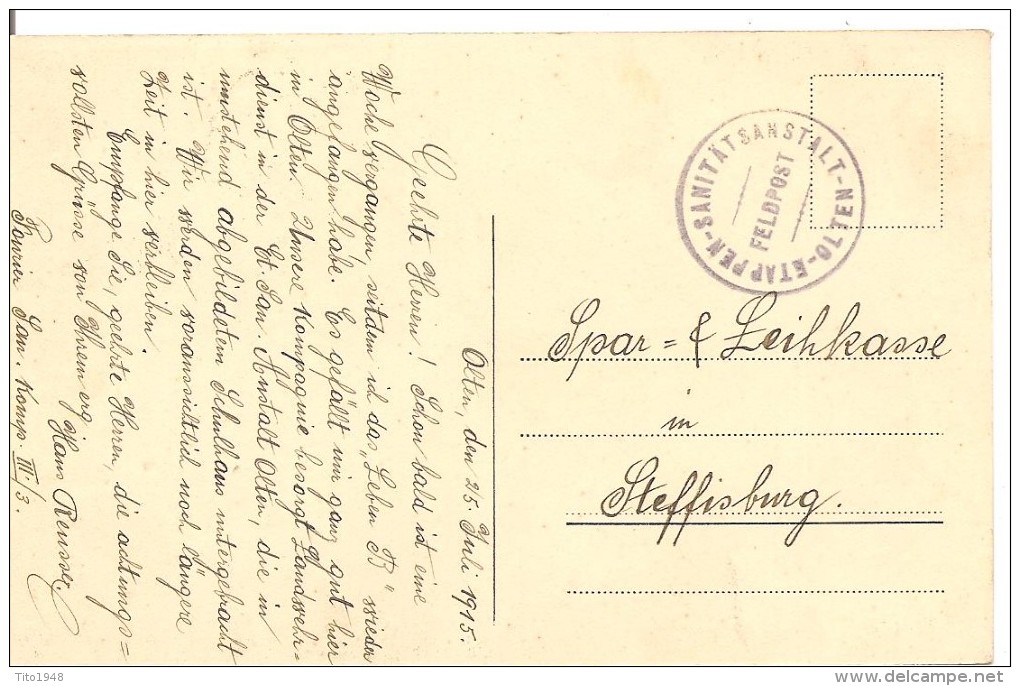 Olten, den 25. Juli 1915.
Geehrte Herren! Schon bald ist eine
Woche vergangen, seitdem ich das „Leben B" wieder
angefangen habe. Es gefällt mir ganz gut hier
in Olten. Unsere Kompagnie besorgt Landwehr-
dienst in der Et. San. Anstalt Olten, die in
umstehend abgebildetem Schulhaus untergebracht
ist. Wir werden voraussichtlich noch längere
Zeit in hier verbleiben.
Empfange Sie, geehrte Herren, die achtungs=
vollsten Grüsse von Ihnem erg. Hans Reusser.
Fourier San. Komp. III/3.
ETAPPEN-SANITÄTSANSTALT-OLTEN-
FELDPOST
Spar= & Leihkasse
in
Steffisburg.
Tito1948
delcampe.net